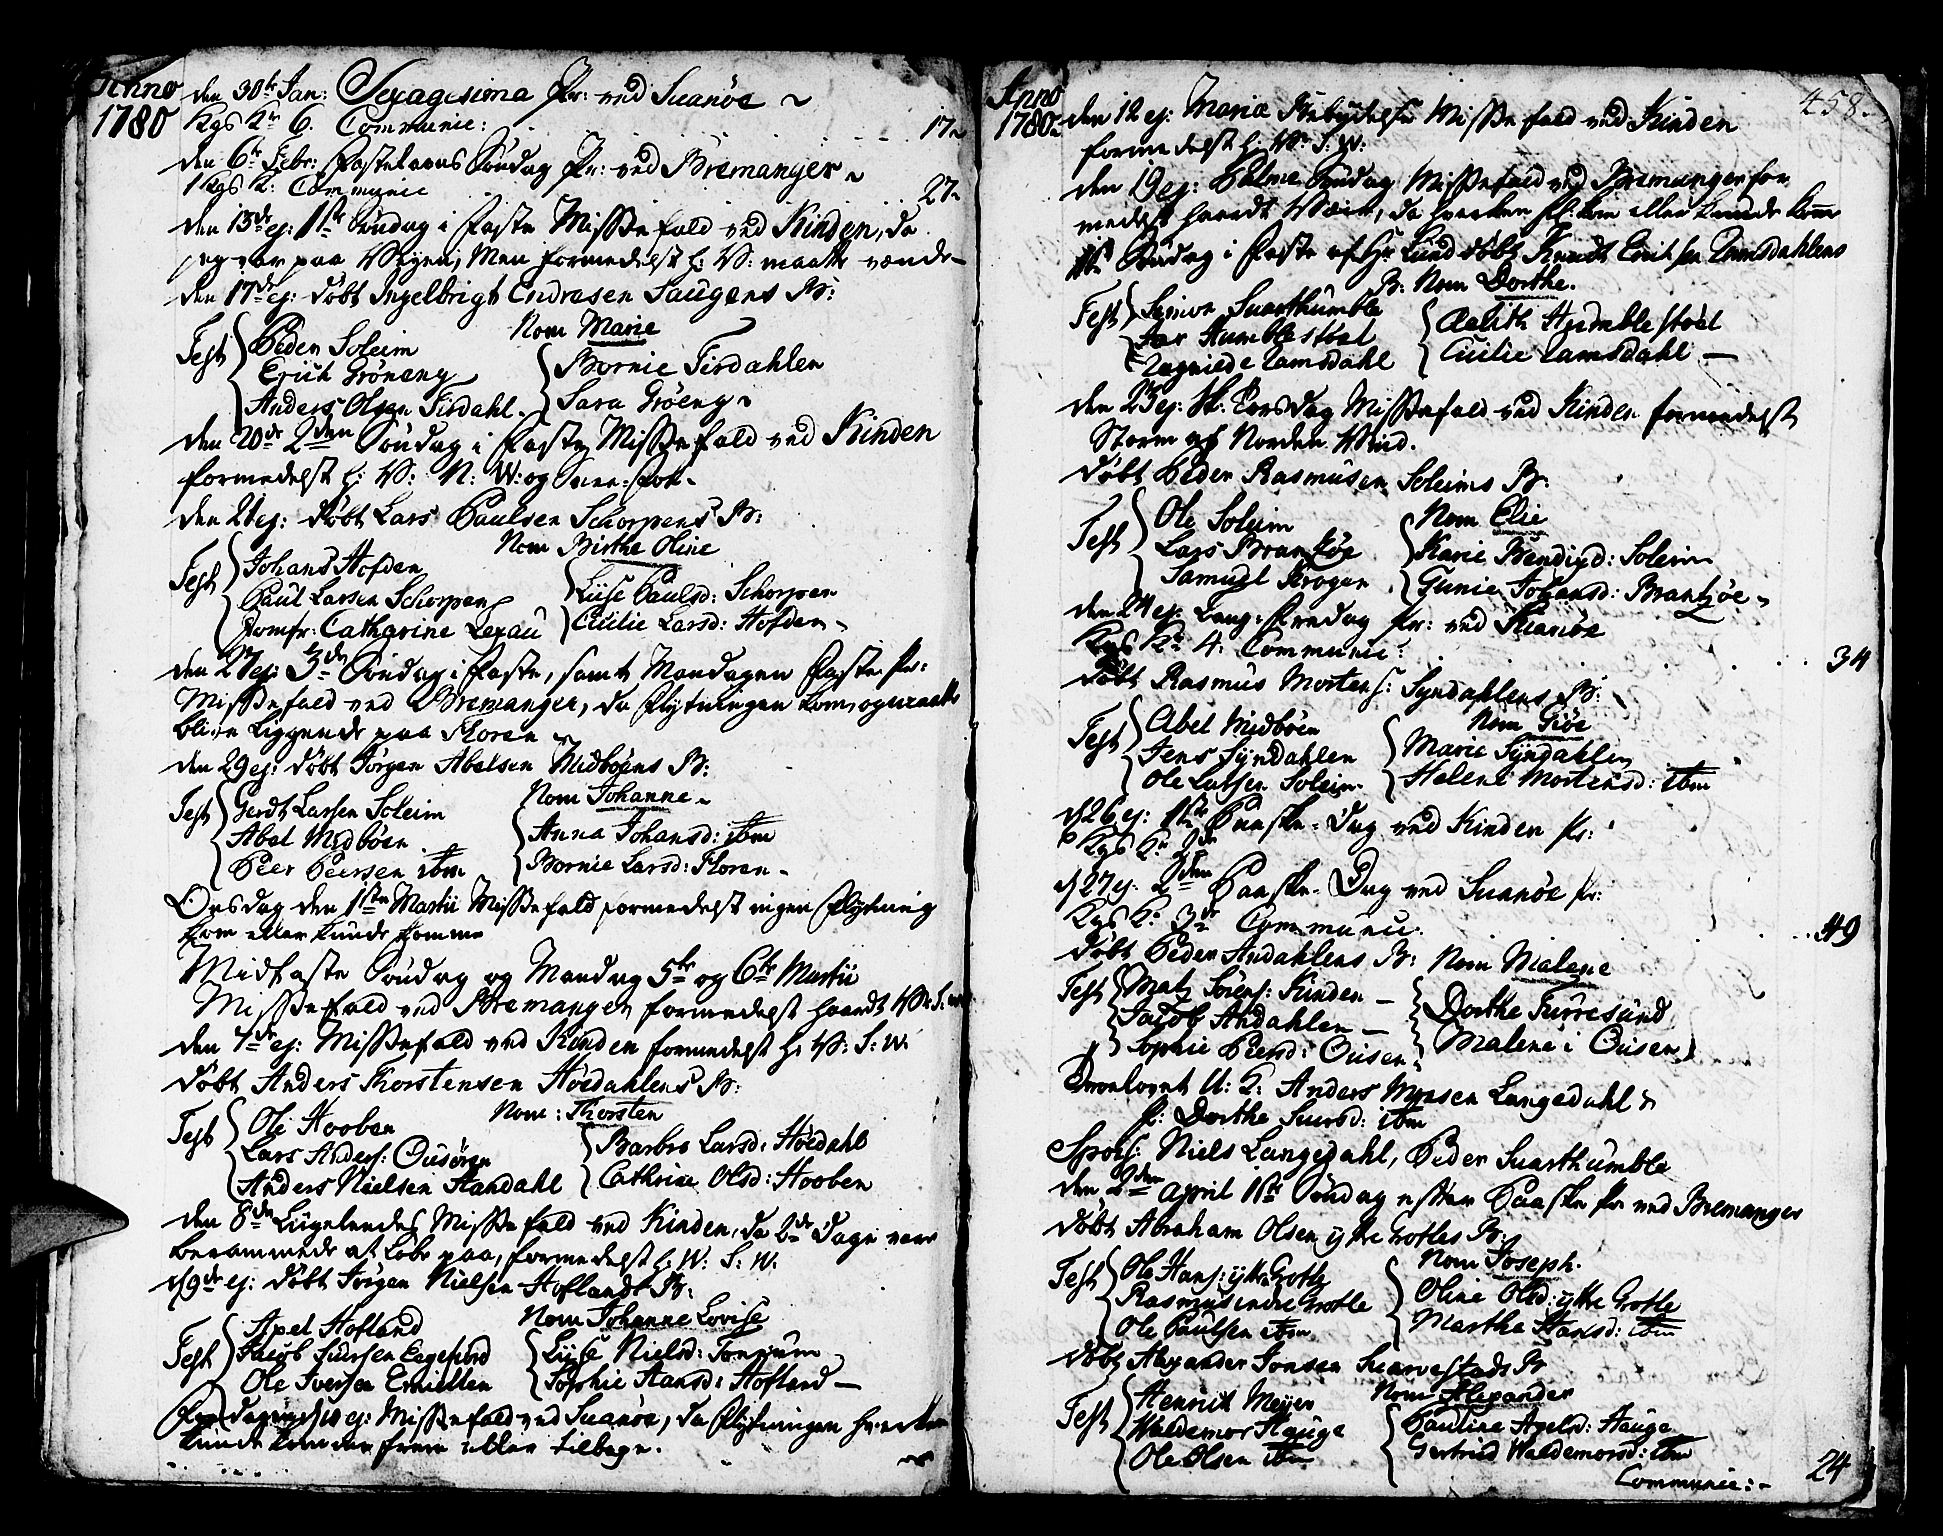 Anno 1780
den 30te Jan: Sexagesima Pr: ved Suanøe
Kgs K: 6. Communic: 17
den 6te Febr: Fastelavns Søndag Pr: ved Bremanger
1 Kgs K: Communic 27
den 13de ej: 1ste Søndag i Faste Missefald ved Kinden, da
jeg var paa Veyen, Men formedelst h: V: maatte vende
den 17de ej: døbt Ingelbrigt Endresen Saugens B:
Nom Marie
Test Peder Soleim
Erich Grøneng
Anders Olsen Tirdahl
Bornie Tirdahlen
Sara Grøeng
den 20de 2den Søndag i Faste Missefald ved Kinden
formedelst h: V: N: W: og Snee-Fok
den 21 ej: døbt Lars Paulsen Schorpens B:
Nom Birthe Oline
Test Johans Hofden
Paul Larsen Schorpen
Jomfr: Catharine Lexau
Liise Paulsd: Schorpen
Cicilie Larsd: Hofden
den 27 ej: 3de Søndag i Faste, samt Mandagen Faste Pr:
Missefald ved Bremanger, da Flytningen kom, og maatte
blive liggende paa Floren
den 29 ej: døbt Jørgen Abelsen Midbøens B:
Nom Johanne
Test Gerdt Larsen Soleim
Abel Midbøen
Peer Peersen ibm
Anna Johansd: ibm
Bornie Larsd: Floren
Onsdag den 1ste Martii Missefald formedelst ingen Flytning
kom eller kunde komme
Midfaste Søndag og Mandag 5te og 6te Martii
Missefald ved Bremanger formedelst haardt V: S: W:
den 7de ej: Missefald ved Kinden formedelst h: V: S: W:
døbt Anders Thorstensen Høedahlens B:
Nom: Thorsten
Test Ole Hooben
Lars Anders: Ousøren
Anders Nielsen Standahl
Barbro Larsd: Høedahl
Cathrine Olsd: Hooben
den 8de Ligeledes Missefald ved Kinden, da 2de Dage vare
berammede at løbe paa, formedelst h: W: S: W:
d 9de ej: døbt Jørgen Nielsen Hoflandt B:
Nom Johanne Lovise
Test Axel Hofland
Jacob Iversen Eegefiord
Ole Iversen
Liise Nielsd:
Sophie Hansd: Hofland
ej: Missefald ved Suanøe, da Flytningen hverken
kunde komme frem eller tilbage.
Anno 1780
458.
den 12 ej: Mariæ Bebudelse Missefald ved Kinden
formedelst h: V: S: W:
den 19 ej: Palme Søndag Missefald ved Bremanger for
medelst haardt Veir, da hverken Fl: kom eller kunde komme
Søndag i Faste af Hr Lund døbt Knudt Erichsen Ramsdahlens
B: Nom Dorthe.
Test Simon Suarthumble
Iver Humblestøel
Ragnilde Ramsdahl
Aalith Humblestøel
Cicilie Ramsdahl
den 23 ej: Sk: Torsdag Missefald ved Kinden formedelst
Storm af Norden Wind.
døbt Peder Rasmusen Soleims B:
Nom Elie
Test Ole Soleim
Lars Brandsøe
Samuel Krogen
Karie Bendixd: Soleim
Gunie Johansd: Brandsøe
den 24 ej: Lang-Fredag Pr: ved Suanøe
Kgs K: 4. Communic: 34
døbt Rasmus Mortens: Syndahlens B:
Nom Giøe
Test Abel Midbøen
Jens Syndahlen
Ole Larsen Soleim
Marie Syndahlen
Helene Mortensd: ibm
d 26 ej: 1ste Paaske-Dag ved Kinden Pr:
Kgs K: 2de
d 27 ej: 2den Paaske-Dag ved Suanøe Pr:
Kgs K: 3de Communic: 49
døbt Peder Andahlens B: Nom Malene
Test Matz Sørens: Kinden
Jacob Andahlen
Sophie Peersd: Ousen
Dorthe Furresund
Malene i Ousen
Trovlovet U: K: Anders Monsen Langedahl &
P: Dorthe Siursd: ibm
Spons: Niels Langedahl, Peder Suarthumble
den 2den April 1ste Søndag efter Paaske Pr: ved Bremanger
døbt Abraham Olsen ytre Grotles B:
Nom Joseph.
Test Ole Hans: ytre Grotle
Rasmus indre Grotle
Ole Paulsen ibm
Oline Olsd: ytre Grotle
Martha Hansd: ibm
døbt Alexander Jonsen B:
Nom Alexander
Test Henrik Meyer
Waldemor Hauge
Ole Olsen ibm
Pauline Axelsd: Hauge
Gertrud Waldemorsd: ibm
Communic: 24